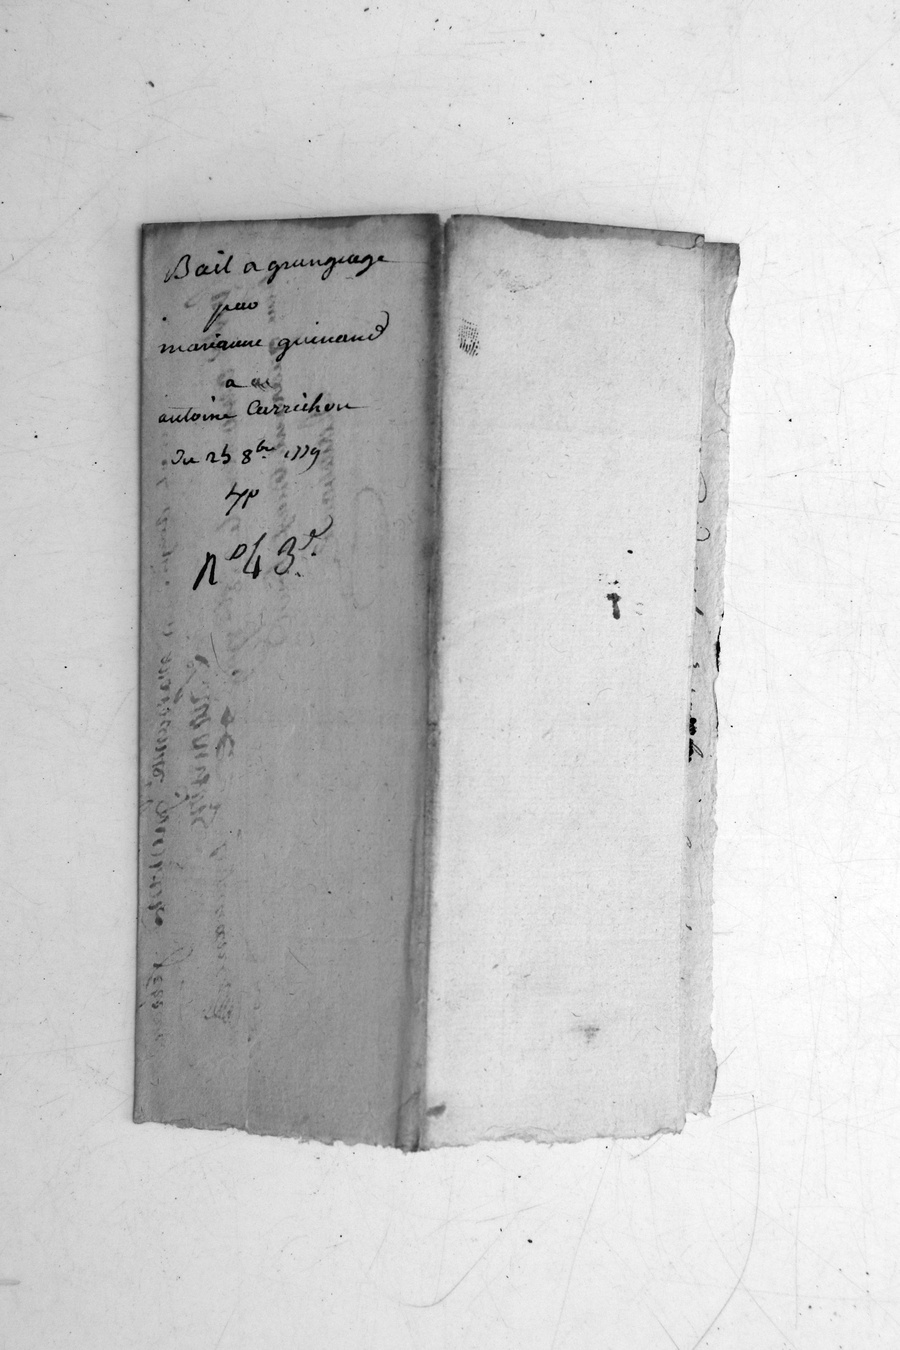 Bail a grangeage
par
marianne guinand
a
antoine Carrichon
du 25 8bre 1779
N° 43e